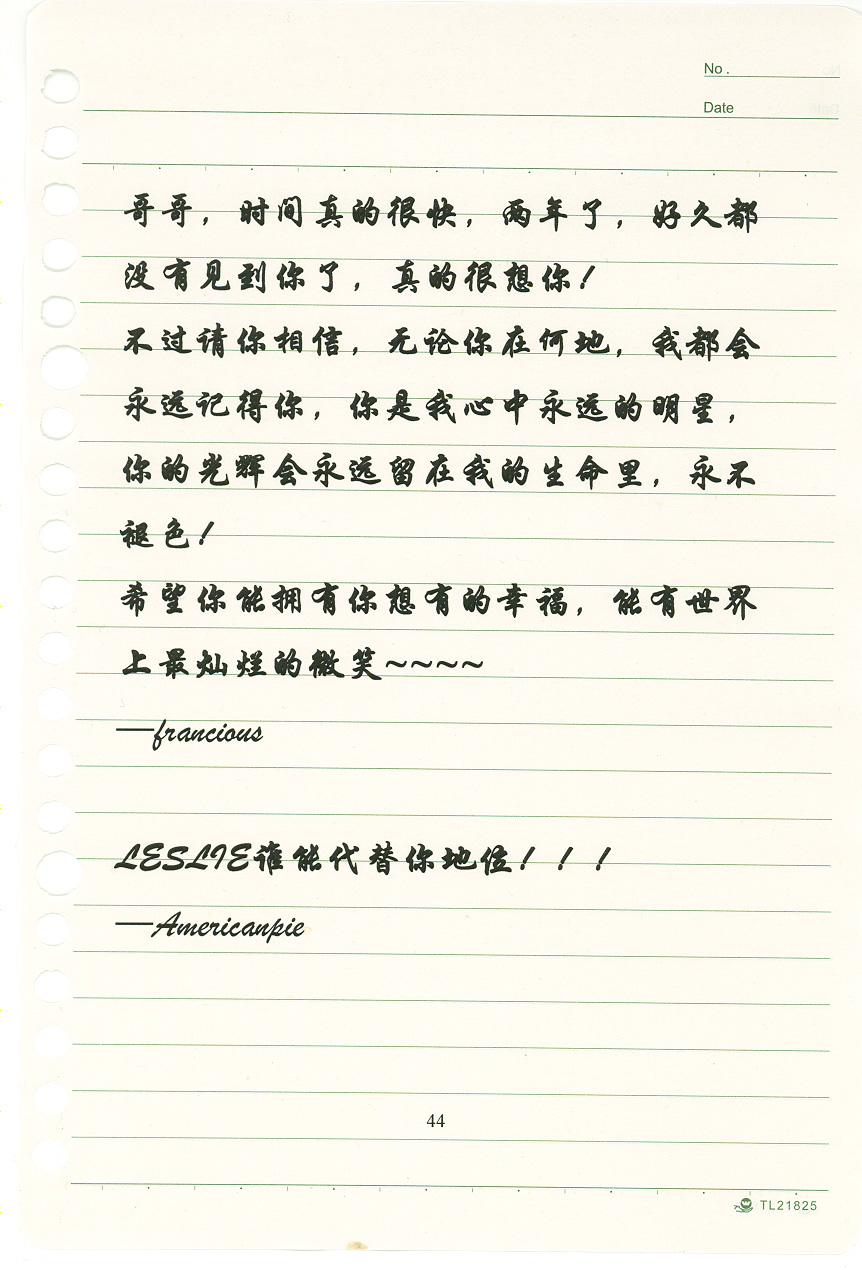 No.
Date
哥哥，时间真的很快，两年了，好久都
没有见到你了，真的很想你！
不过请你相信，无论你在何地，我都会
永远记得你，你是我心中永远的明星，
你的光辉会永远留在我的生命里，永不
褪色！
希望你能拥有你想有的幸福，能有世界
上最灿烂的微笑~~~~
—francious
LESLIE谁能代替你地位！！！
—Americanpie
44
TL21825